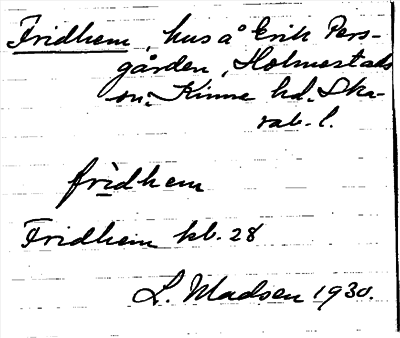 Fridhem, hus å Erik Pers-
gården, Holmestads
sn, Kinne hd. Ska-
rab. l.
frìdhem
Fridhem kb. 28
L. Madsen 1930.